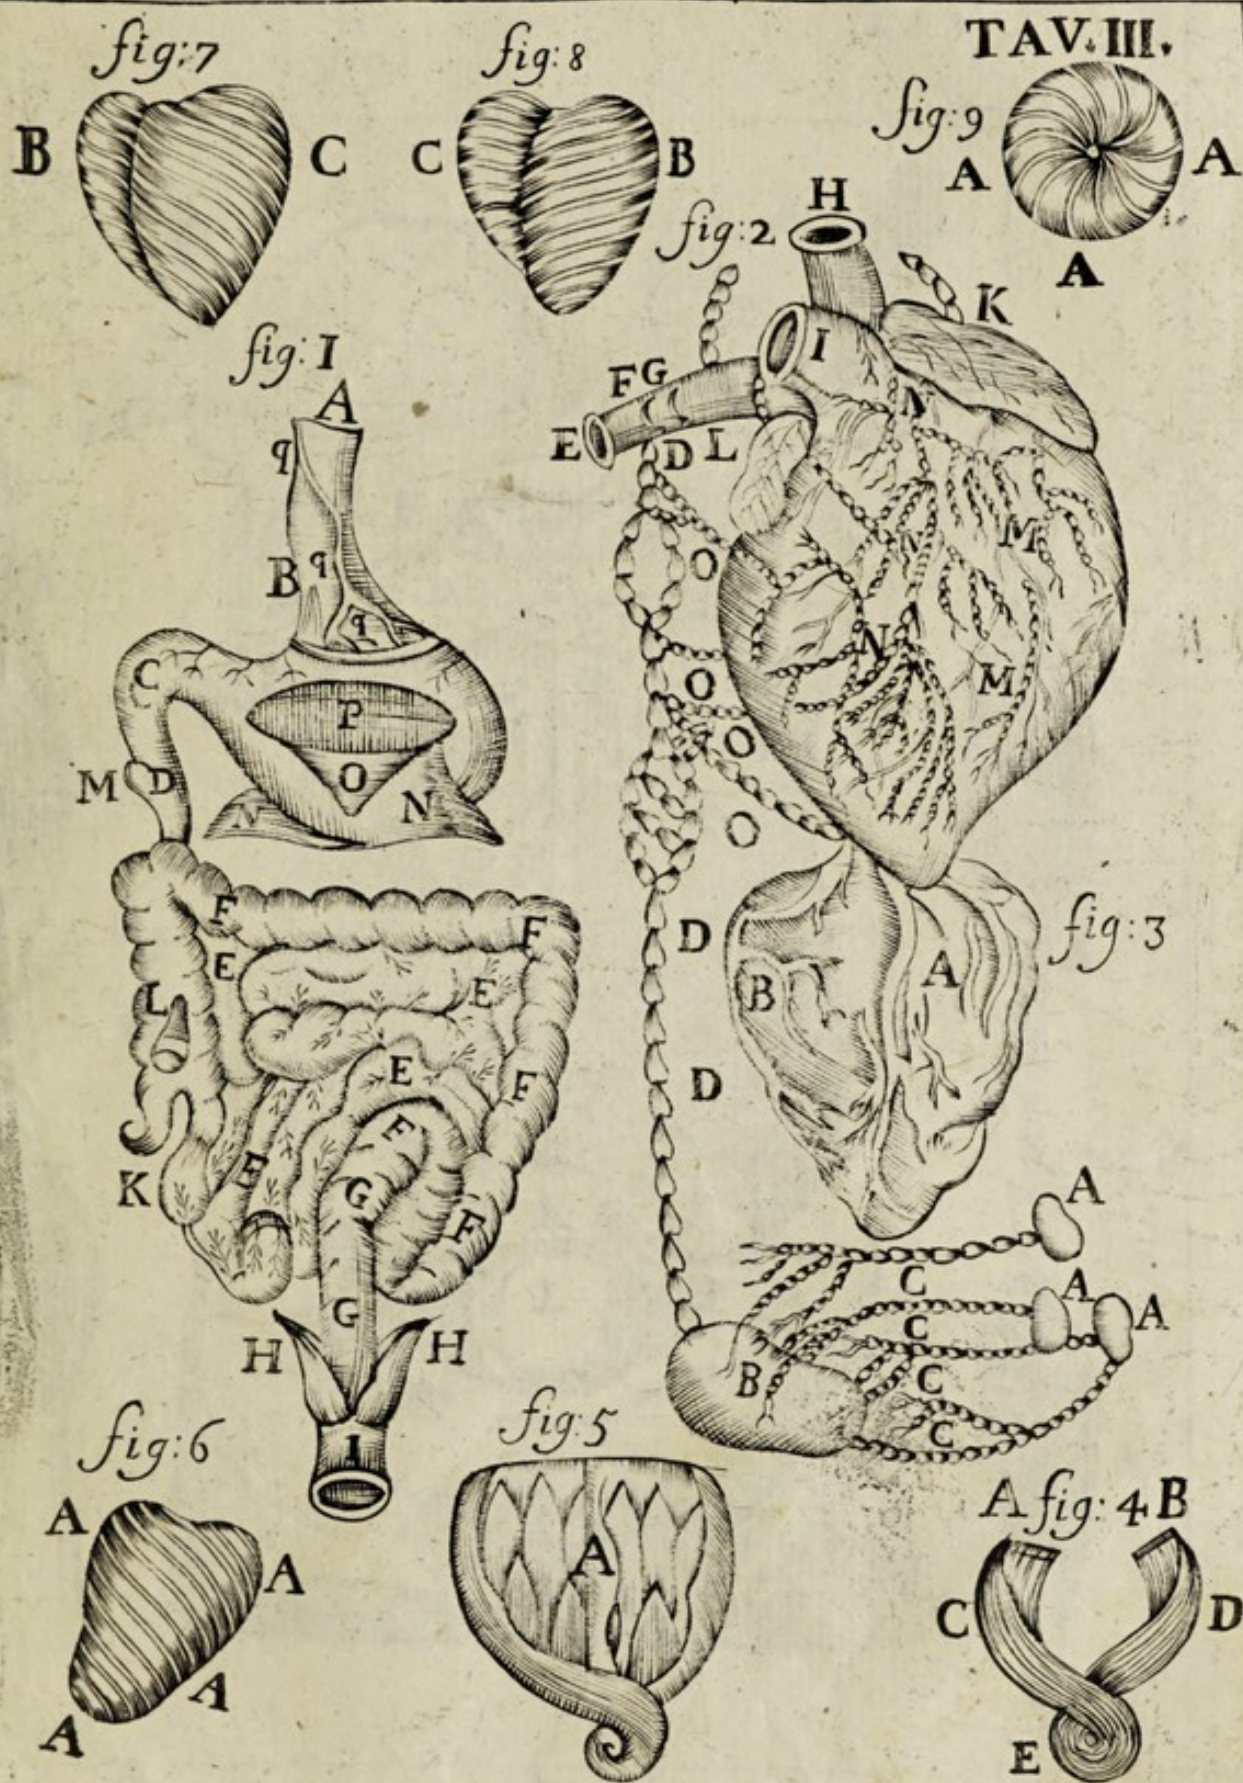 TAV. III.
fig:7
B
C
fig:8
C
B
fig:9
A
A
A
fig:2
H
K
I
F G
E
D
L
N
M
O
N
O
M
O
O
D
D
fig:I
A
q
B
q
q
C
P
M
D
O
N
N
F
F
E
E
L
E
F
F
K
E
G
F
G
H
H
I
fig:3
B
A
A
C
A
A
C
B
C
C
fig:6
A
A
A
A
fig:5
A
A fig:4 B
C
D
E